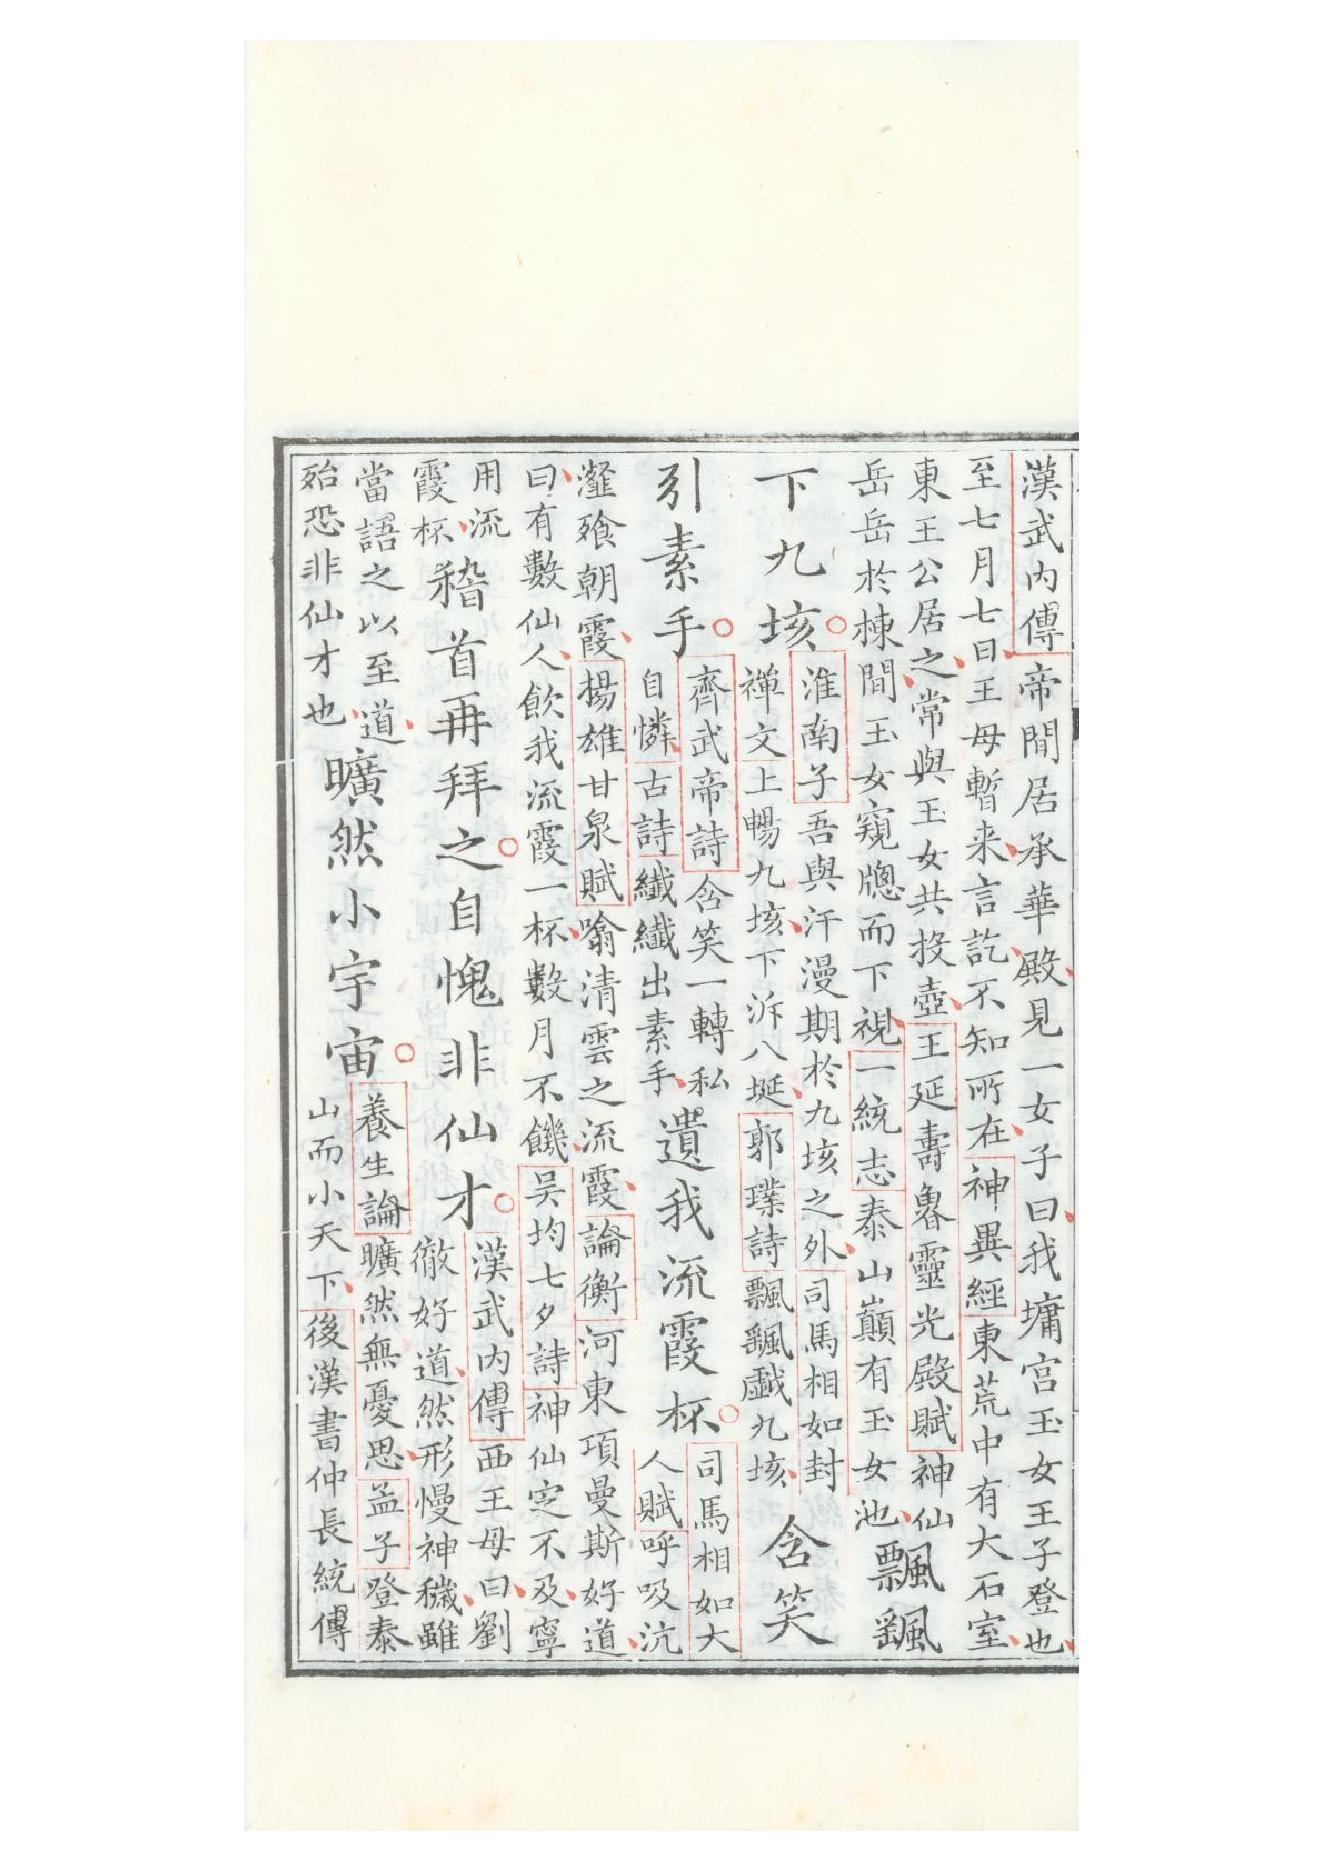 漢武内傳帝閒居承華殿見一女子曰我墉宫玉女王子登也
至七月七日王母暫来言訖不知所在神異經東荒中有大石室
東王公居之常與玉女共投壺王延壽魯靈光殿賦神仙
岳岳於棟間玉女窺牕而下視一統志泰山巔有玉女池
飄飖
下九垓
淮南子吾與汗漫期於九垓之外司馬相如封
禪文上暢九垓下泝八埏郭璞詩飄飖戯九垓
含笑
引素手
齊武帝詩含笑一轉私
自憐古詩纖纖出素手
遺我流霞杯
司馬相如大
人賦呼吸沆
瀣飱朝霞揚雄甘泉賦噏清雲之流霞論衡河東項曼斯好道
曰有數仙人飲我流霞一杯數月不饑吴均七夕詩神仙定不及寧
用流
霞杯
稽首再拜之自愧非仙才
漢武内傳西王母曰劉
徹好道然形慢神穢雖
當語之以至道
殆恐非仙才也
曠然小宇宙
養生論曠然無憂思孟子登泰
山而小天下後漢書仲長統傳